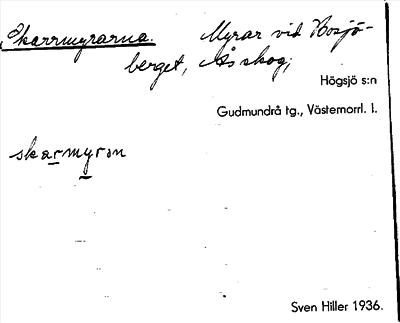 Skarrmyrarna. Myrar vid Bosjö-
berget, Ås skog;
Högsjö s:n
Gudmundrå tg., Västernorrl. l.
skarmyrɘn
Sven Hiller 1936.